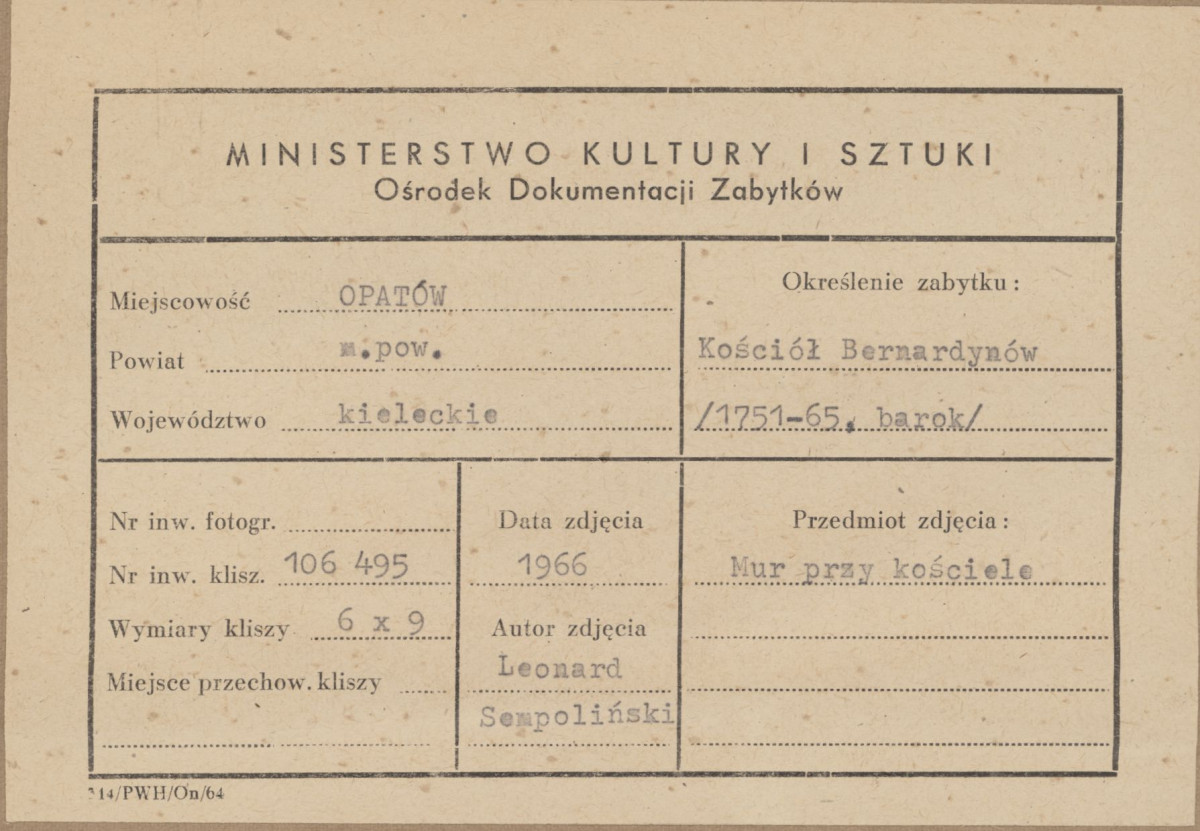 MINISTERSTWO KULTURY I SZTUKI
Ośrodek Dokumentacji Zabytków
Miejscowość OPATÓW
Powiat m.pow.
Województwo kieleckie
Określenie zabytku:
Kościół Bernardynów
/1751-65, barok/
Nr inw. fotogr.
Nr inw. klisz. 106 495
Wymiary kliszy 6 x 9
Miejsce przechow. kliszy
Data zdjęcia
1966
Autor zdjęcia
Leonard
Sempoliński
Przedmiot zdjęcia:
Mur przy kościele
14/PWH/On/64